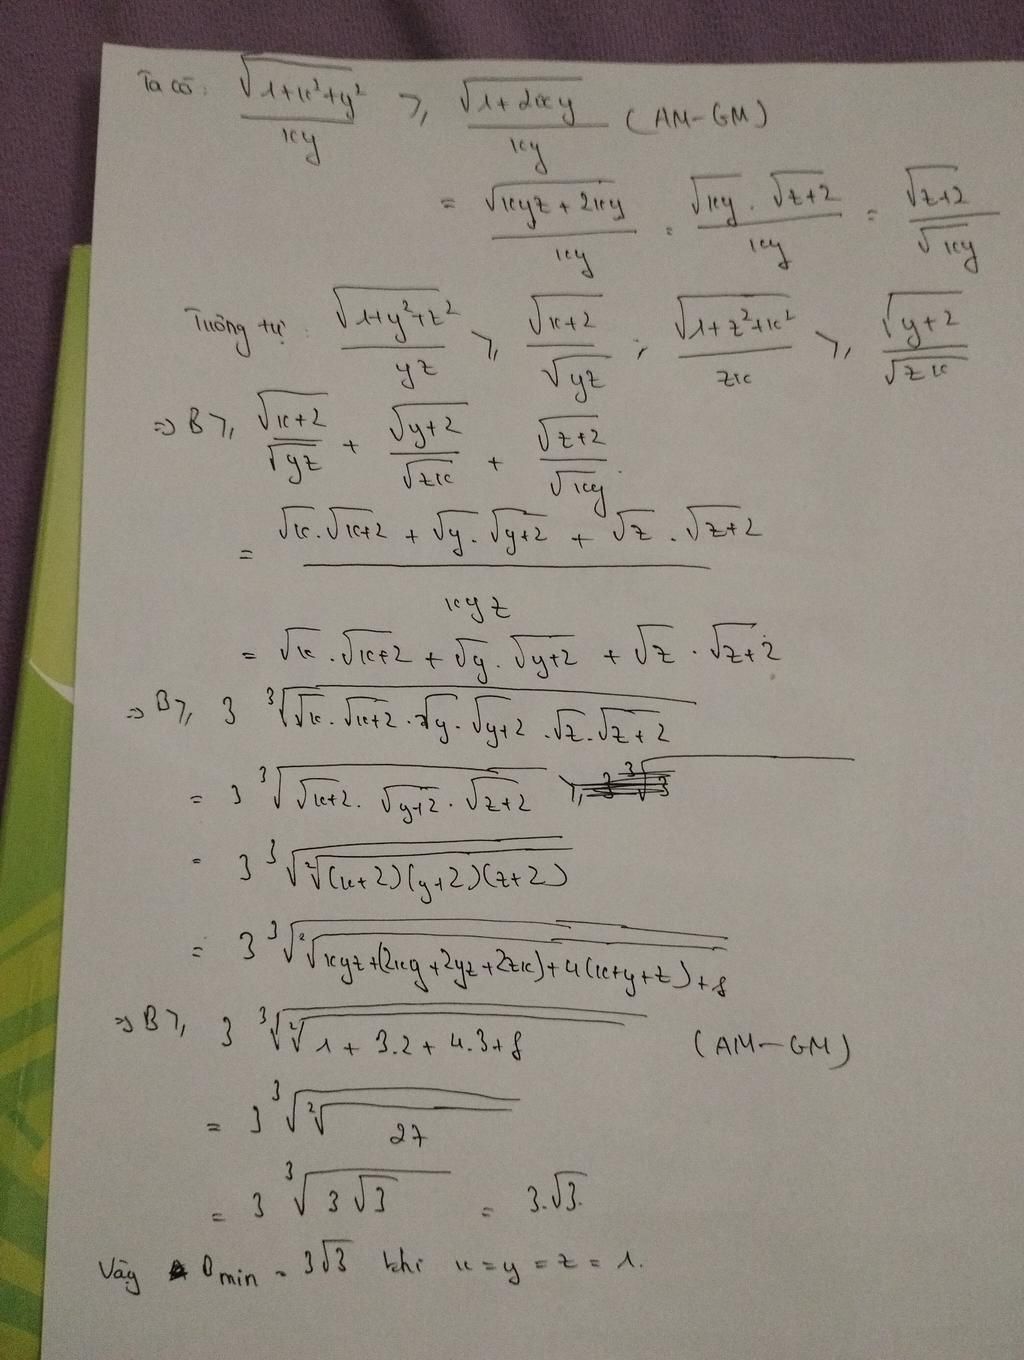 Ta có: √(1+x²+y²)/xy ≥ √(1+2xy)/xy (AM-GM)
= √(xyz+2xy)/xy = √xy . √(z+2)/xy = √(z+2)/√xy
Tương tự: √(1+y²+z²)/yz ≥ √(x+2)/√yz ; √(1+z²+x²)/zx ≥ √(y+2)/√zx
⇒ B ≥ √(x+2)/√yz + √(y+2)/√zx + √(z+2)/√xy
= (√x . √(x+2) + √y . √(y+2) + √z . √(z+2))/xyz
= √x . √(x+2) + √y . √(y+2) + √z . √(z+2)
⇒ B ≥ 3 ³√(√x . √(x+2) . √y . √(y+2) . √z . √(z+2))
= 3 ³√(√(x+2) . √(y+2) . √(z+2))
= 3 ³√(²√((x+2)(y+2)(z+2)))
= 3 ³√(²√(xyz+(2xy+2yz+2zx)+4(x+y+z)+8))
⇒ B ≥ 3 ³√(²√(1+3.2+4.3+8)) (AM-GM)
= 3 ³√(²√27)
= 3 ³√(3√3) = 3.√3.
Vậy Bmin = 3√3 khi x=y=z=1.